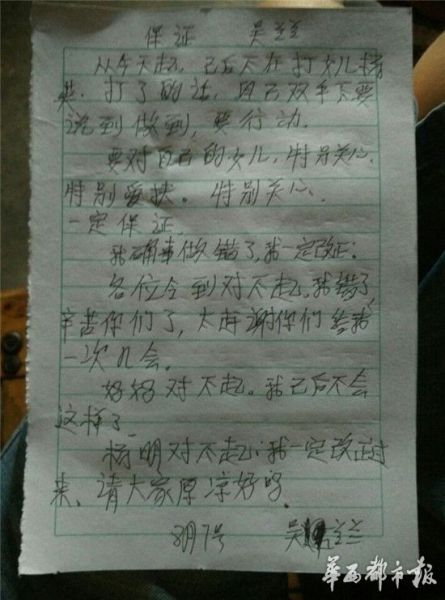 保证 吴兰兰
从今天起，己后不在打女儿杨
英，打了的话，自己双手不要
说到做到，要行动.
要对自己的女儿，特另关心.
特别爱扶。特别关心.
一定保证.
我确事做错了，我一定改正.
各位令到对不起，我错了，
辛苦你们了，太再谢你们给我
一次几会.
好好对不起。我己后不会
这样了.
杨明对不起，我一定改正过
来，请大家原凉好吗.
8月7号 吴兰兰
华西都市报